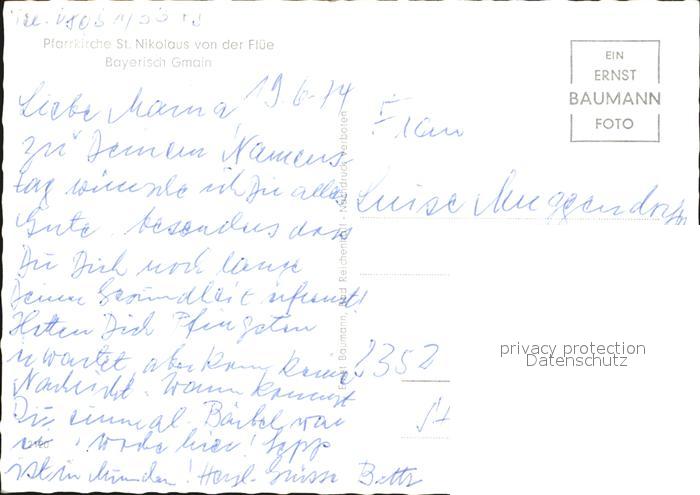 Pfarrkirche St. Nikolaus von der Flüe
Bayerisch Gmain
EIN
ERNST
BAUMANN
FOTO
19.6.74
Liebe Mama,
zu Deinem Namens
tag wünsche ich Dir alles
Gute, besonders dass
Du Dich noch lange
Deiner Gesundheit erfreust!
Hatten Dich Pfingsten
erwartet, aber kam keine
Nachricht. Wann kommst
Du einmal. Bärbel war
Woche hier! Sepp
ist in München! Herzl. Grüsse Betti
Frau
Luise Muggendorfer
Ernst Baumann, Bad Reichenhall - Nachdruck verboten
privacy protection
Datenschutz